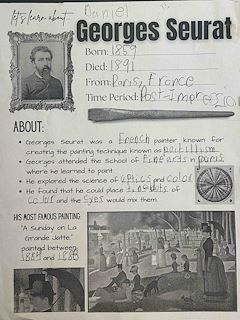 let's learn about... Daniel
Georges Seurat
Born: 1859
Died: 1891
From: Paris, France
Time Period: Post-Impressi
ABOUT:
• Georges Seurat was a French painter known for
creating the painting technique known as pointillism
• Georges attended the School of Fine arts in paris
where he learned to paint.
• He explored the science of optics and color
• He found that he could place tiny dots of
color and the eyes would mix them.
HIS MOST FAMOUS PAINTING:
"A Sunday on La
Grande Jatte,"
painted between
1884 and 1886